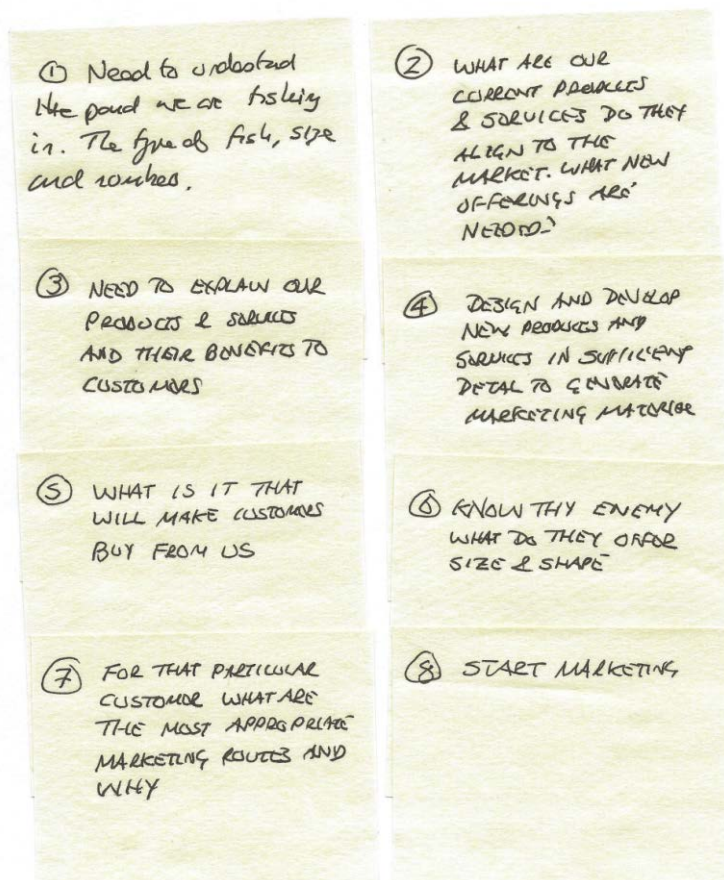 ① Need to undestand
the pond we are fishing
in. The type of fish, size
and number.
② WHAT ARE OUR
CURRENT PRODUCTS
& SERVICES DO THEY
ALIGN TO THE
MARKET. WHAT NEW
OFFERINGS ARE
NEEDED?
③ NEED TO EXPLAIN OUR
PRODUCTS & SERVICES
AND THEIR BENEFITS TO
CUSTOMERS
④ DESIGN AND DEVELOP
NEW PRODUCTS AND
SERVICES IN SUFFICIENT
DETAL TO GENERATE
MARKETING MATERIAL
⑤ WHAT IS IT THAT
WILL MAKE CUSTOMERS
BUY FROM US
⑥ KNOW THY ENEMY
WHAT DO THEY OFFER
SIZE & SHAPE
⑦ FOR THAT PARTICULAR
CUSTOMER WHAT ARE
THE MOST APPROPRIATE
MARKETING ROUTES AND
WHY
⑧ START MARKETING